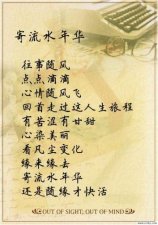 寄流水年华
往事随风
点点滴滴
心情随风飞
回首走过这人生旅程
有苦涩有甘甜
心染美丽
看凡尘变化
缘来缘去
寄流水年华
还是随缘才快活
OUT OF SIGHT, OUT OF MIND